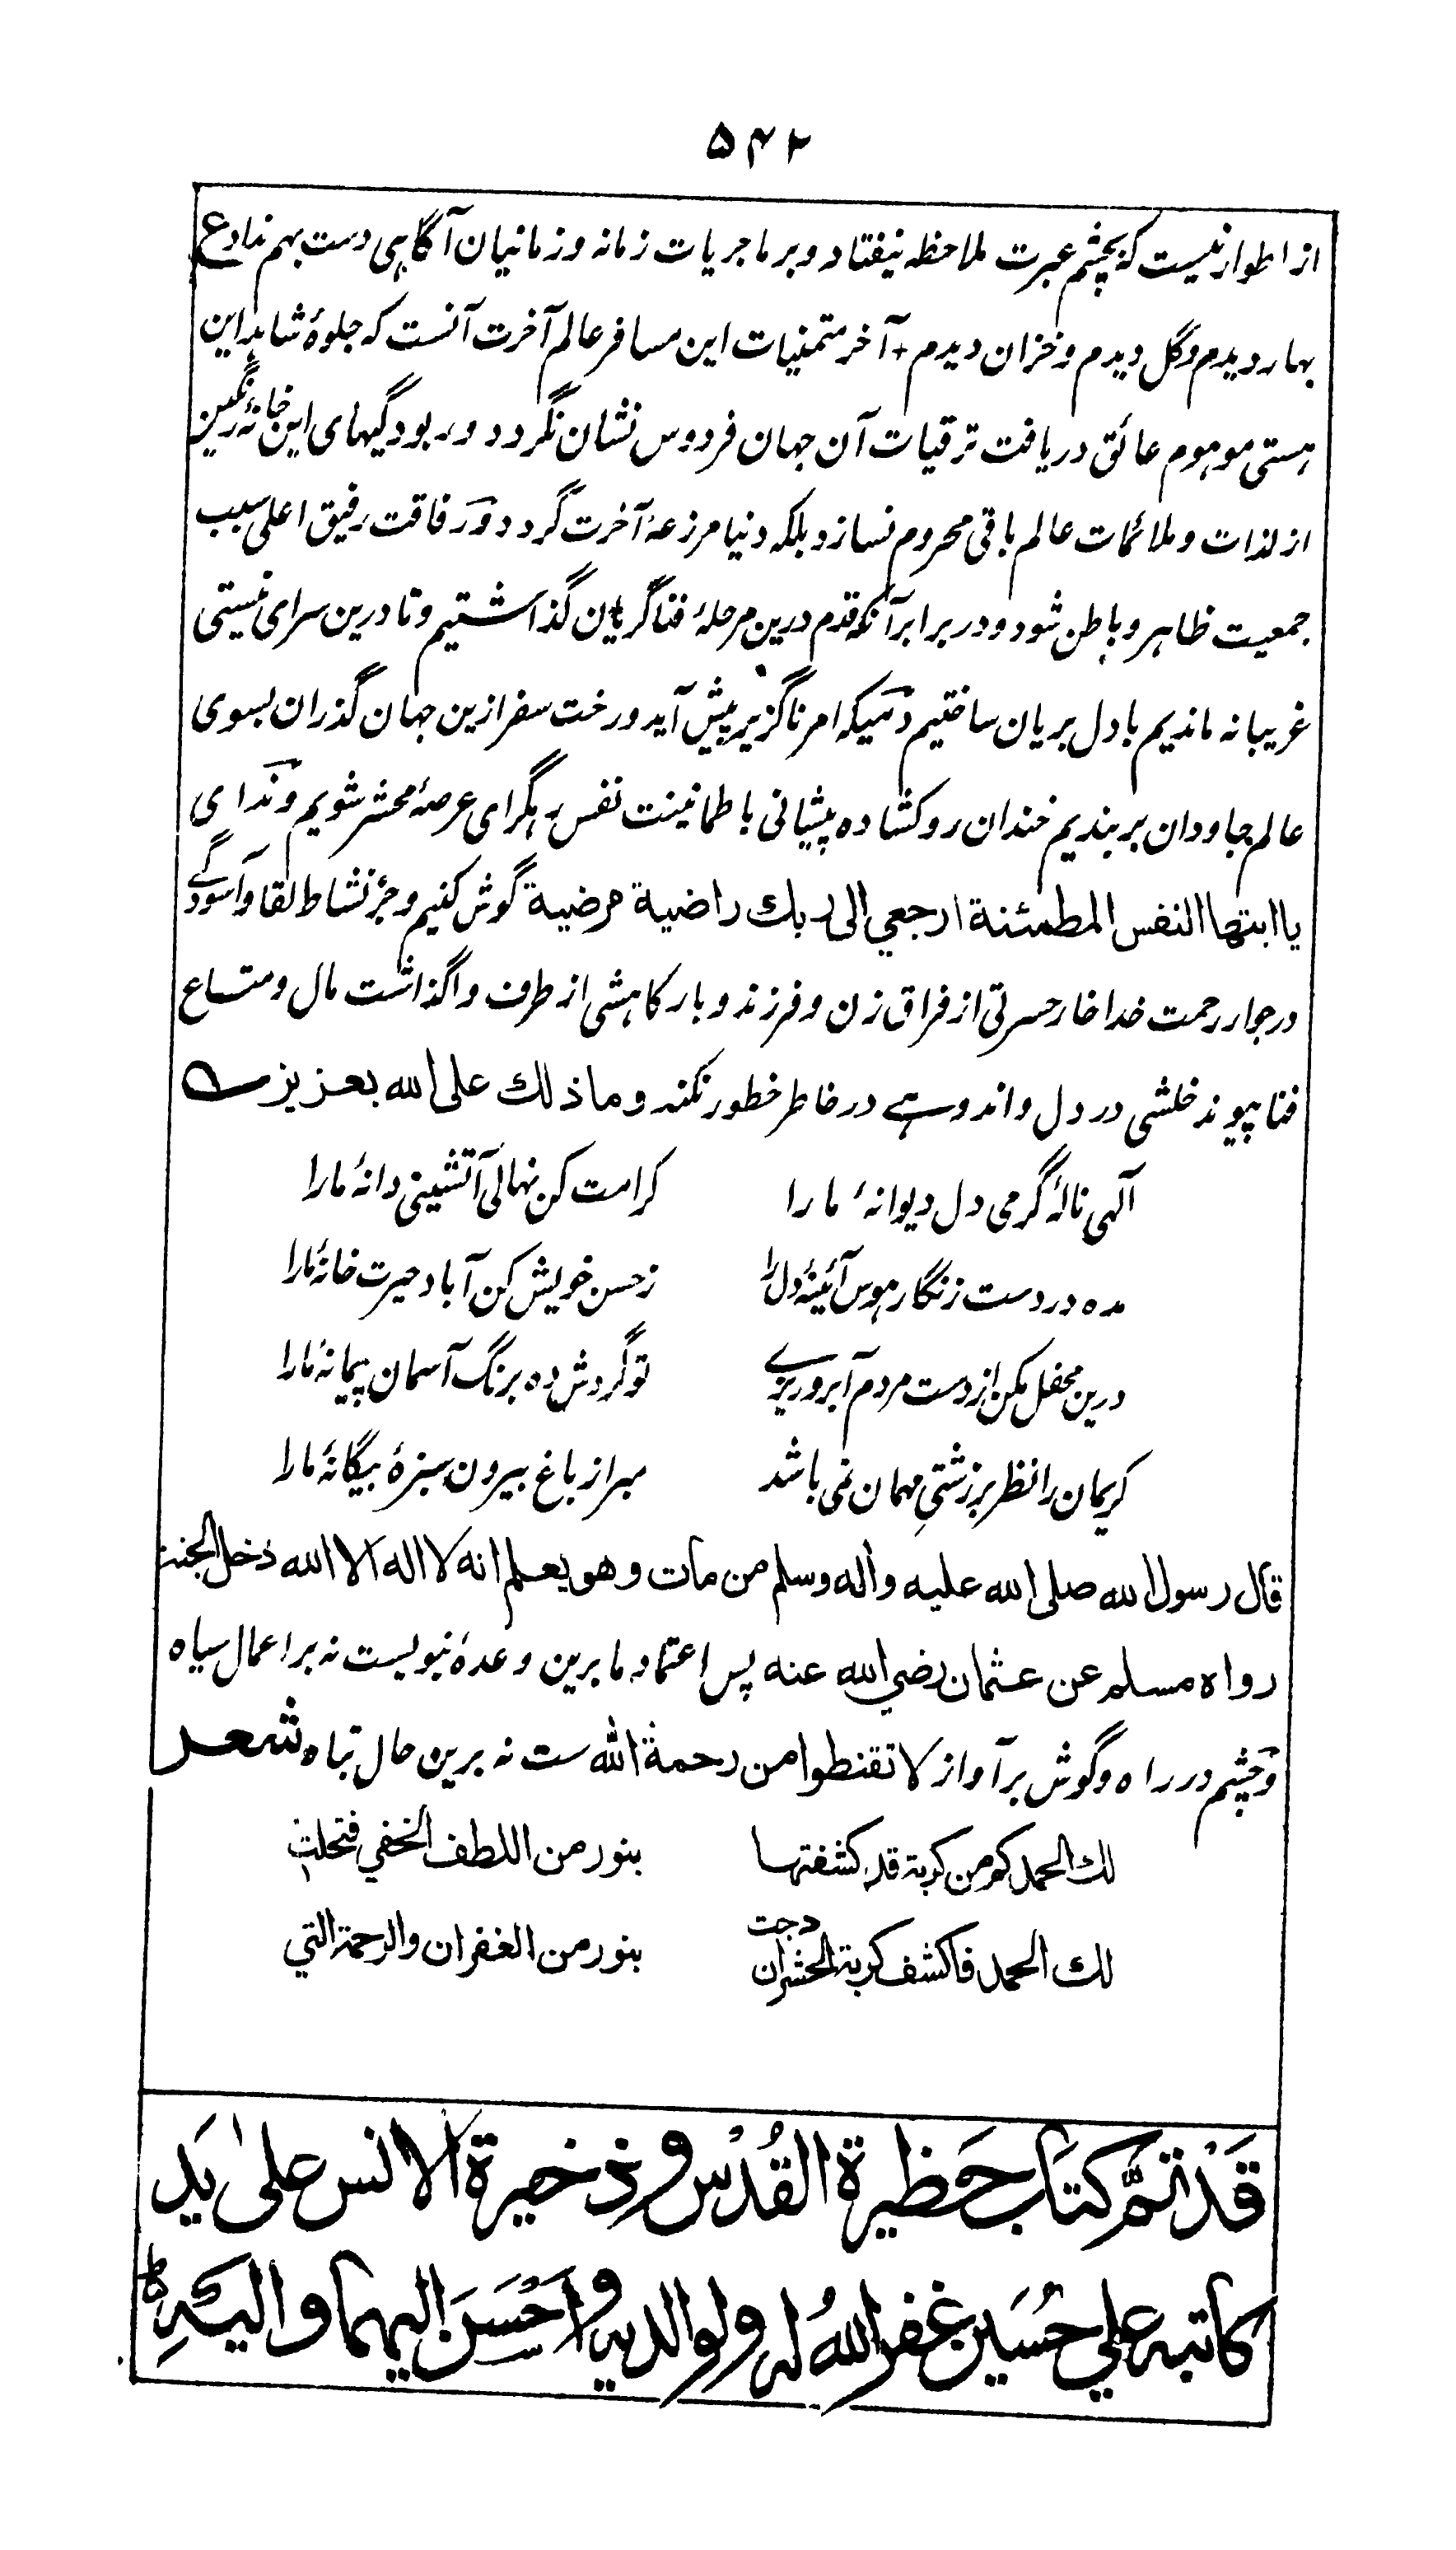 ۵۴۲
از اطوار نیست که بچشم عبرت ملاحظه نیفتاد و بر ماجریات زمانه و زمانیان آگاهی دست بهم نداد ع
بهار دیدم و گل دیدم و خزان دیدم + آخر متمنیات این مسافر عالم آخرت آنست که جلوهٔ شاهد این
هستی موهوم عائق دریافت ترقیات آن جهان فردوس نشان نگردد و ربودگیهای این خانهٔ رنگین
از لذات و ملائمات عالم باقی محروم نسازد بلکه دنیا مزرعهٔ آخرت گردد و رفاقت رفیق اعلی سبب
جمعیت ظاهر و باطن شود و در برابر آنکه قدم درین مرحلهٔ فنا گریان گذاشتیم و تا درین سرای نیستی
غریبانه ماندیم با دل بریان ساختیم دمیکه امر ناگزیر پیش آید و رخت سفر ازین جهان گذران بسوی
عالم جاودان بربندیم خندان رو کشاده پیشانی با طمانینت نفس رهگرای عرصهٔ محشر شویم و ندای
یا ایتها النفس المطمئنة ارجعي الی ربك راضیة مرضیة گوش کنیم و جز نشاط لقا و آسودگے
در جوار رحمت خدا خار حسرتی از فراق زن و فرزند و بار کاهشی از طرف واگذاشت مال و متاع
فنا پیوند خلشی در دل و اندوہے در خاطر خطور نکند وما ذلك علی الله بعزیز
آلهی نالهٔ گرمی دل دیوانهٔ ما را کرامت کن نهالی آتشینی دانهٔ ما را
مده در دست زنگار هوس آئینهٔ دل را ز حسن خویش کن آباد حیرت خانهٔ ما را
درین محفل مکن از دست مردم آبروریزے تو گردش ده برنگ آسمان پیمانهٔ ما را
کریمان را نظر بر زشتیِ مهمان نمی باشد مبر از باغ بیرون سبزهٔ بیگانهٔ ما را
قال رسول الله صلی الله علیه وأله وسلم من مات وهو یعلم انه لا اله الا الله دخل الجنة
رواه مسلم عن عثمان رضي الله عنه پس اعتماد ما برین وعدهٔ نبویست نه بر اعمال سیاه
و چشم در راه و گوش بر آواز لا تقنطوا من رحمة الله ست نه برین حال تباه شعر
لك الحمد كم من كربة قد كشفتها بنور من اللطف الخفي فتجلت
لك الحمد فاكشف كربة الحشر ان دجت بنور من الغفران والرحمة التي
قَدْ تَمَّ كتَاب حَظيرة القُدْس وذخيرة الانس على يَد
كاتبه علي حُسَين غفر اللهُ له ولوالديه واَحْسَنَ اليهما واليهِ